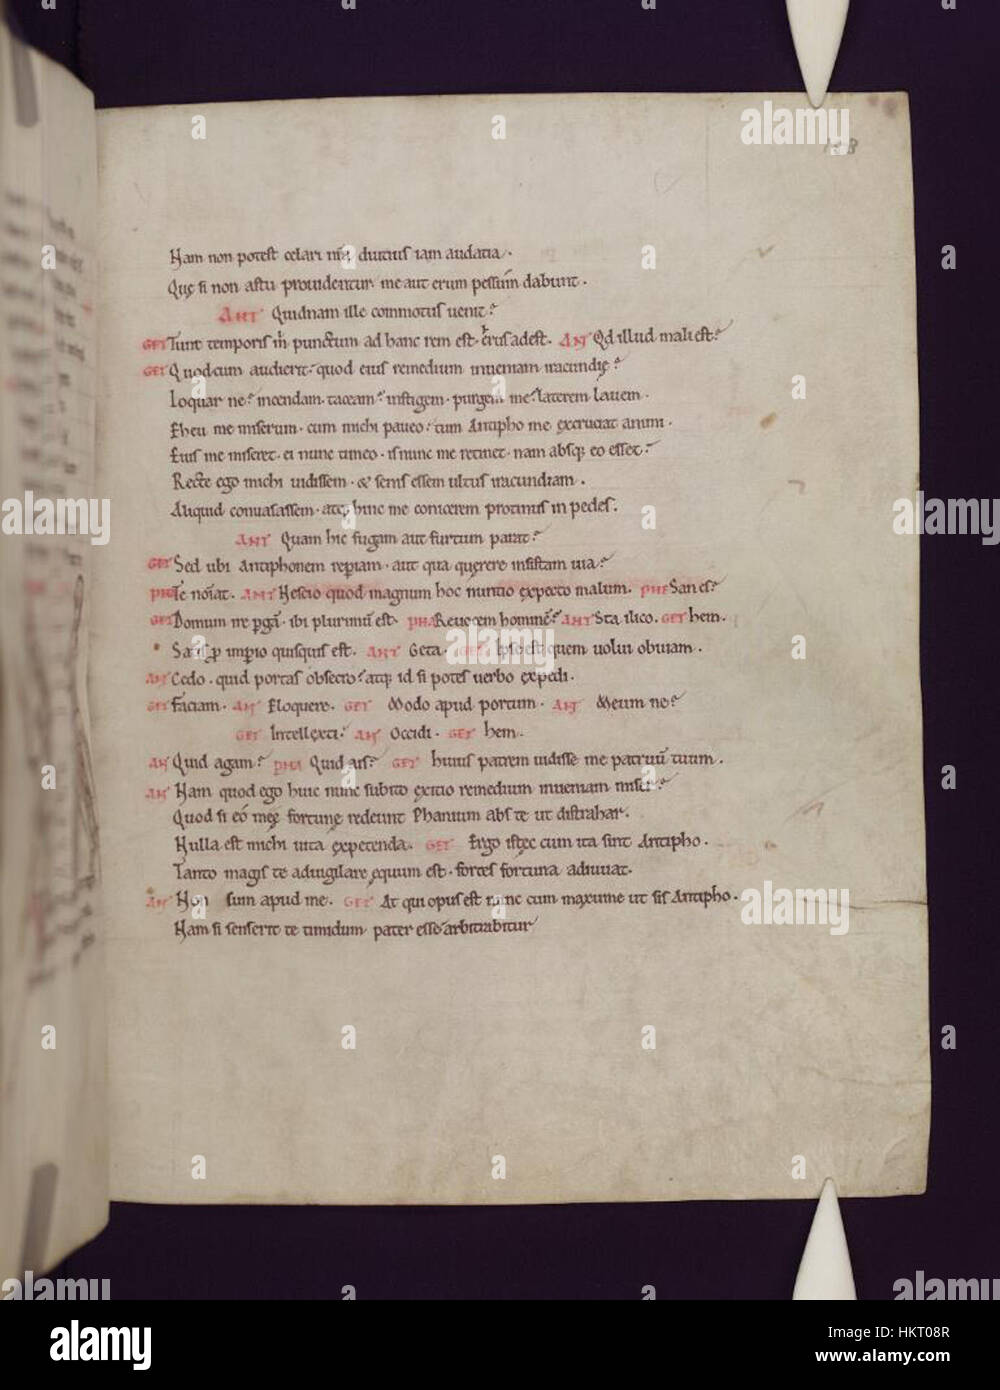 168
Nam non potest celari nr̄a diutius iam audatia.
Quę si non astu prouidentur me aut erum pessūm dabunt.
ANT Quidnam ille commotus uenit?
GET Tunc temporis m̄ punctum ad hanc rem est. erus adest. AN Qd illud mali est?
GET Quod cum audierit. quod eius remedium inueniam iracundię?
Loquar ne? incendam. taceam? instigem. purgem me? laterem lauem.
Eheu me miserum. cum michi paueo. tum Antipho me excruciat animi.
Eius me miseret. ei nunc timeo. is nunc me retinet. nam absq; eo esset?
Recte ego michi uidissem. & senis essem ultus iracundiam.
Aliquid conuasassem. atq; hinc me conicerem protinus in pedes.
ANT Quam hic fugam aut furtum parat?
GET Sed ubi antiphonem reperiam. aut qua quęrere insistam uia?
PHE Te noīat. ANT Nescio quod magnum hoc nuntio expecto malum. PHE San es?
GET Domum ire pgā. ibi plurimū est. PHA Reuocem hominē? ANT Sta ilico. GET hem.
Satis p imperio quisquis est. ANT Geta. GET Ipse est quem uolui obuiam.
AN Cedo. quid portas obsecro? atq; id si potes uerbo expedi.
GET Faciam. AN Eloquere. GET Modo apud portum. AN Meum ne?
GET Intellexti? AN Occidi. GET hem.
AN Quid agam? PHA Quid ais? GET huius patrem uidisse me patruū tuum.
AN Nam quod ego huic nunc subito exitio remedium inueniam miser?
Quod si eō męę fortunę redeunt Phanium abs te ut distrahar.
Nulla est michi uita expetenda. GET Ergo istęc cum ita sint Antipho.
Tanto magis te aduigilare ęquum est. fortes fortuna adiuuat.
AN Non sum apud me. GET At qui opus est nunc cum maxume ut sis Antipho.
Nam si senserit te timidum pater esse arbitrabitur
alamy
Image ID: HKT08R
www.alamy.com